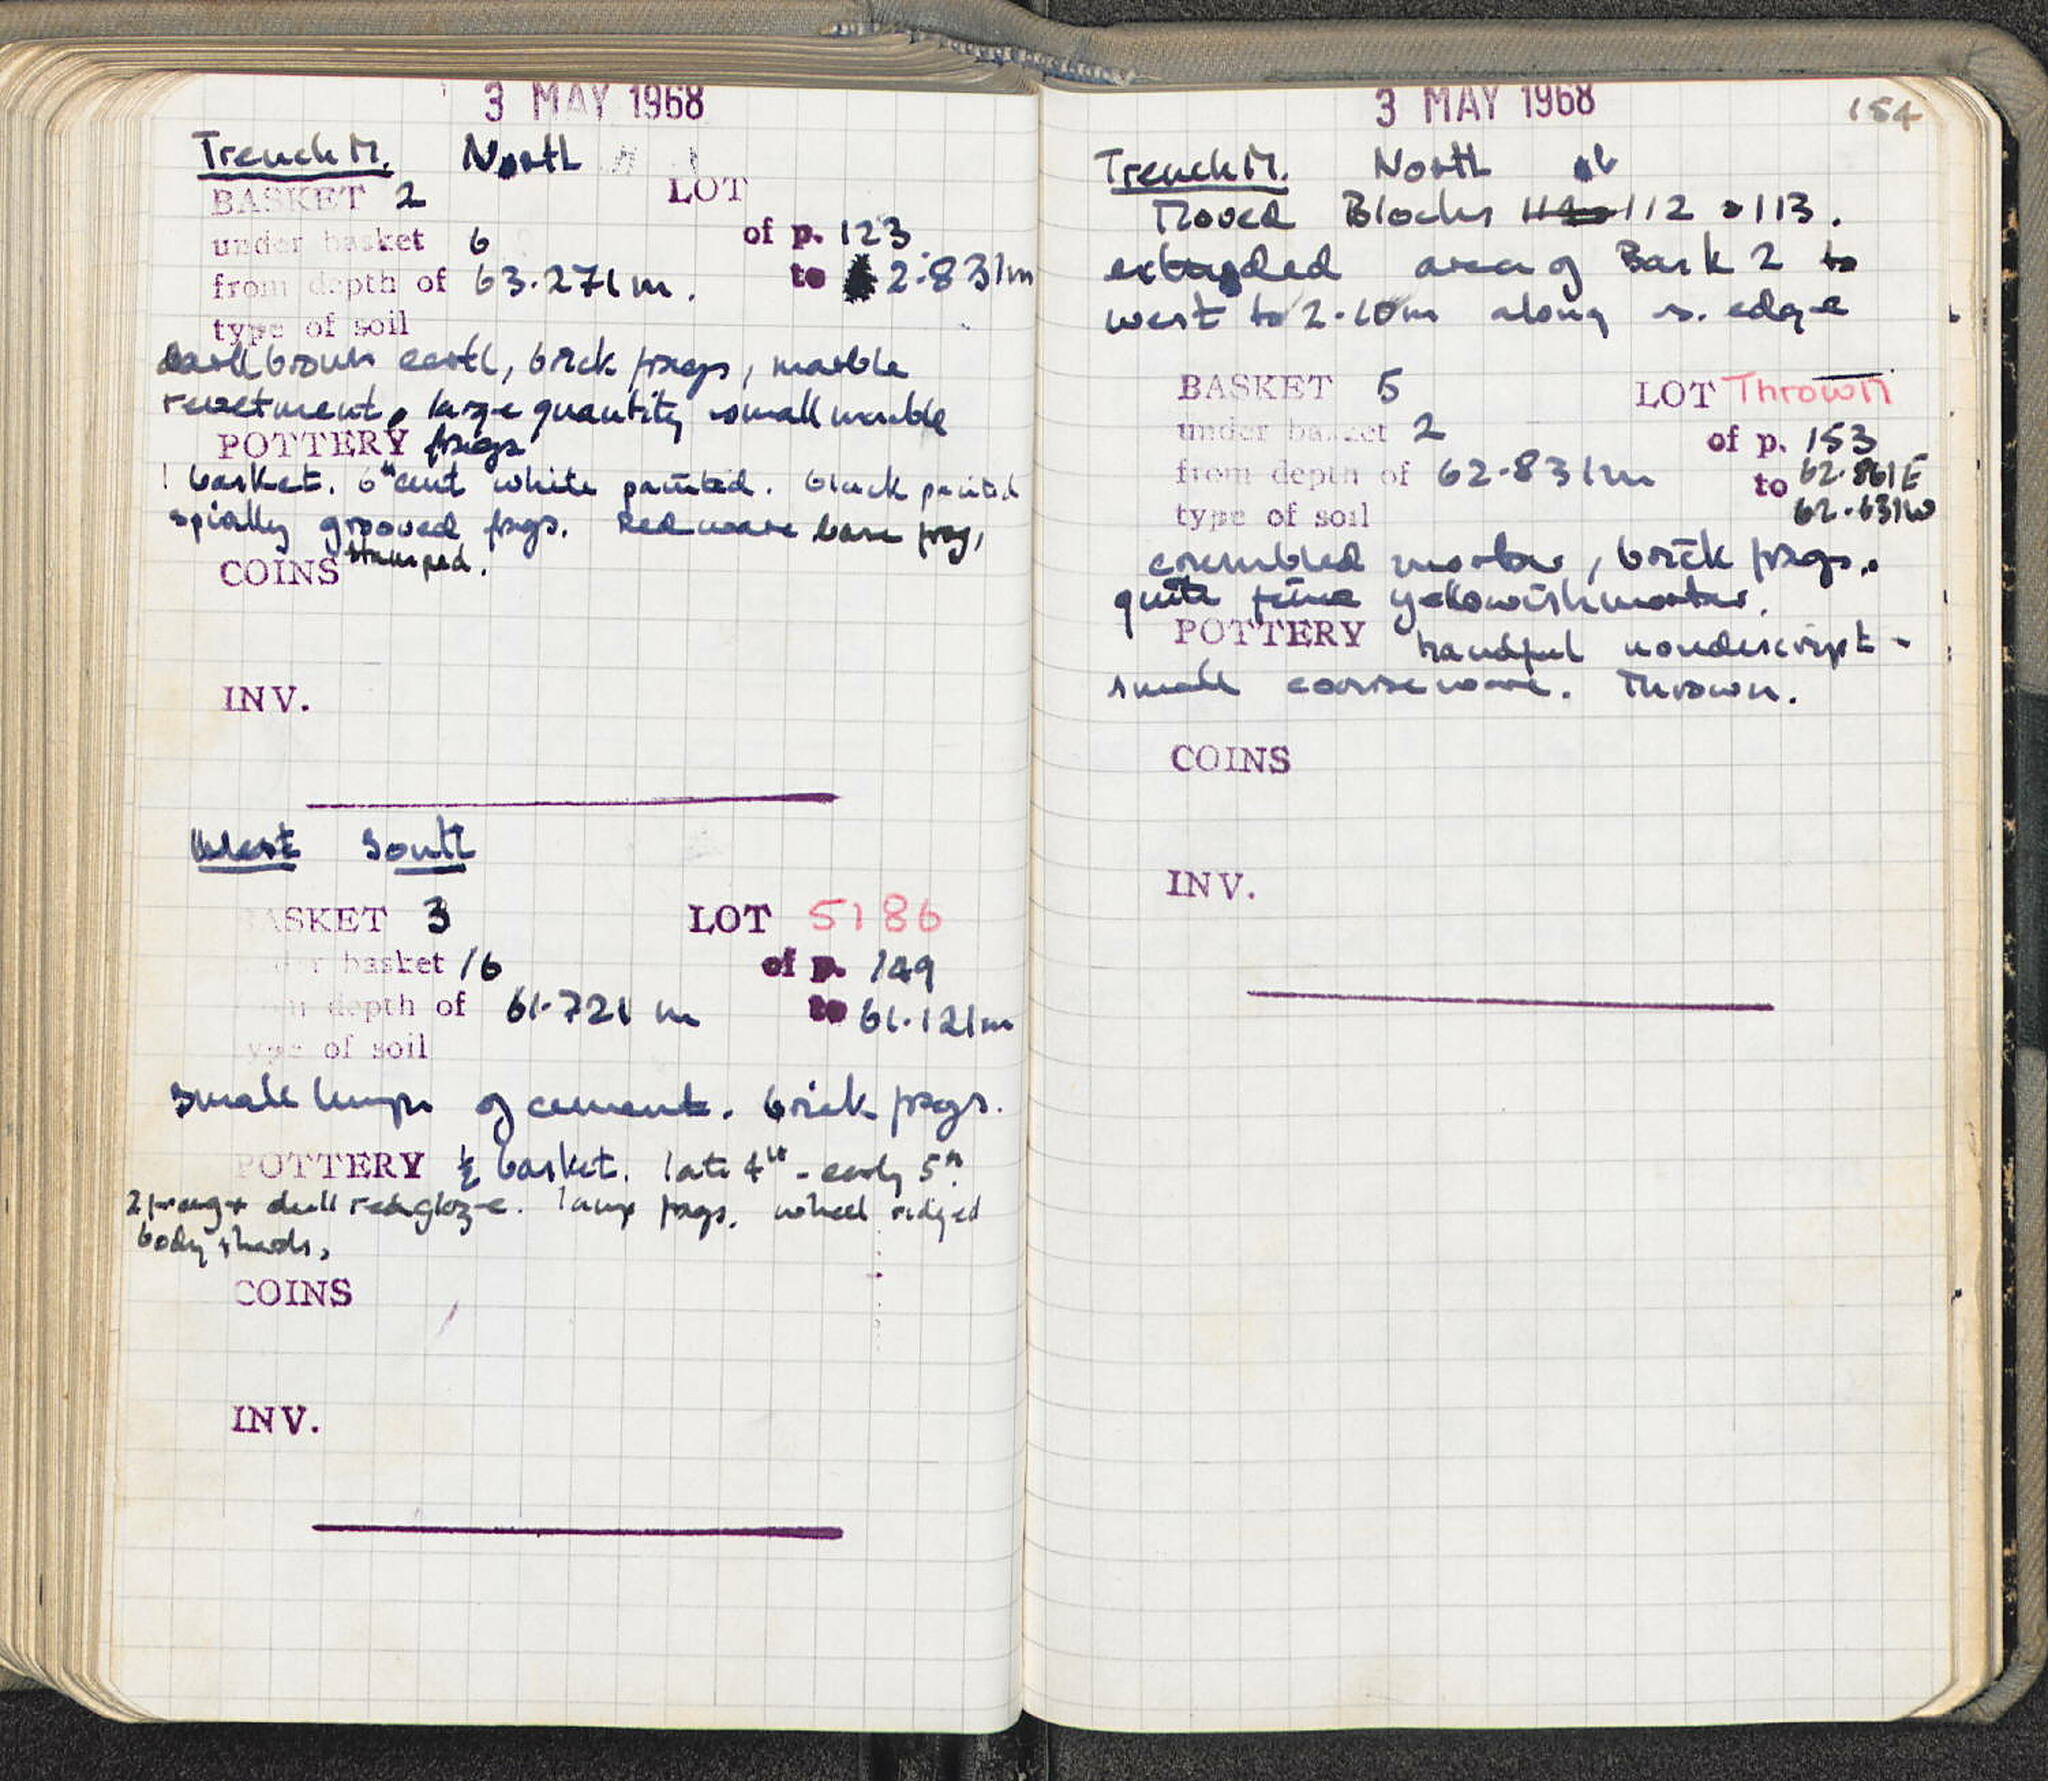 3 MAY 1968
Trench M. North
BASKET 2 LOT
under basket 6 of p. 123
from depth of 63.271m. to 2.831m
type of soil
dark brown earth, brick frags, marble
revetment, large quantity small marble
POTTERY frags
1 basket. 6th cent white painted. black painted
spirally grooved frags. Red ware base frag,
COINS stamped.
INV.
West South
BASKET 3 LOT 5186
under basket 16 of p. 149
from depth of 61.721 m to 61.121m
type of soil
small lumps of cement. brick frags.
POTTERY ½ basket. late 4th - early 5th.
2 frags dull red glaze. lamp frags. wheel ridged
body sherds.
COINS
INV.
3 MAY 1968 154
Trench M. North
Moved Blocks 112 113.
extended area of Bask 2 to
west to 2.10m along s. edge
BASKET 5 LOT Thrown
under basket 2 of p. 153
from depth of 62.831m to 62.861E
62.631W
type of soil
crumbled mortar, brick frags..
quite fine yellowish mortar.
POTTERY handful nondescript -
small coarse ware. Thrown.
COINS
INV.